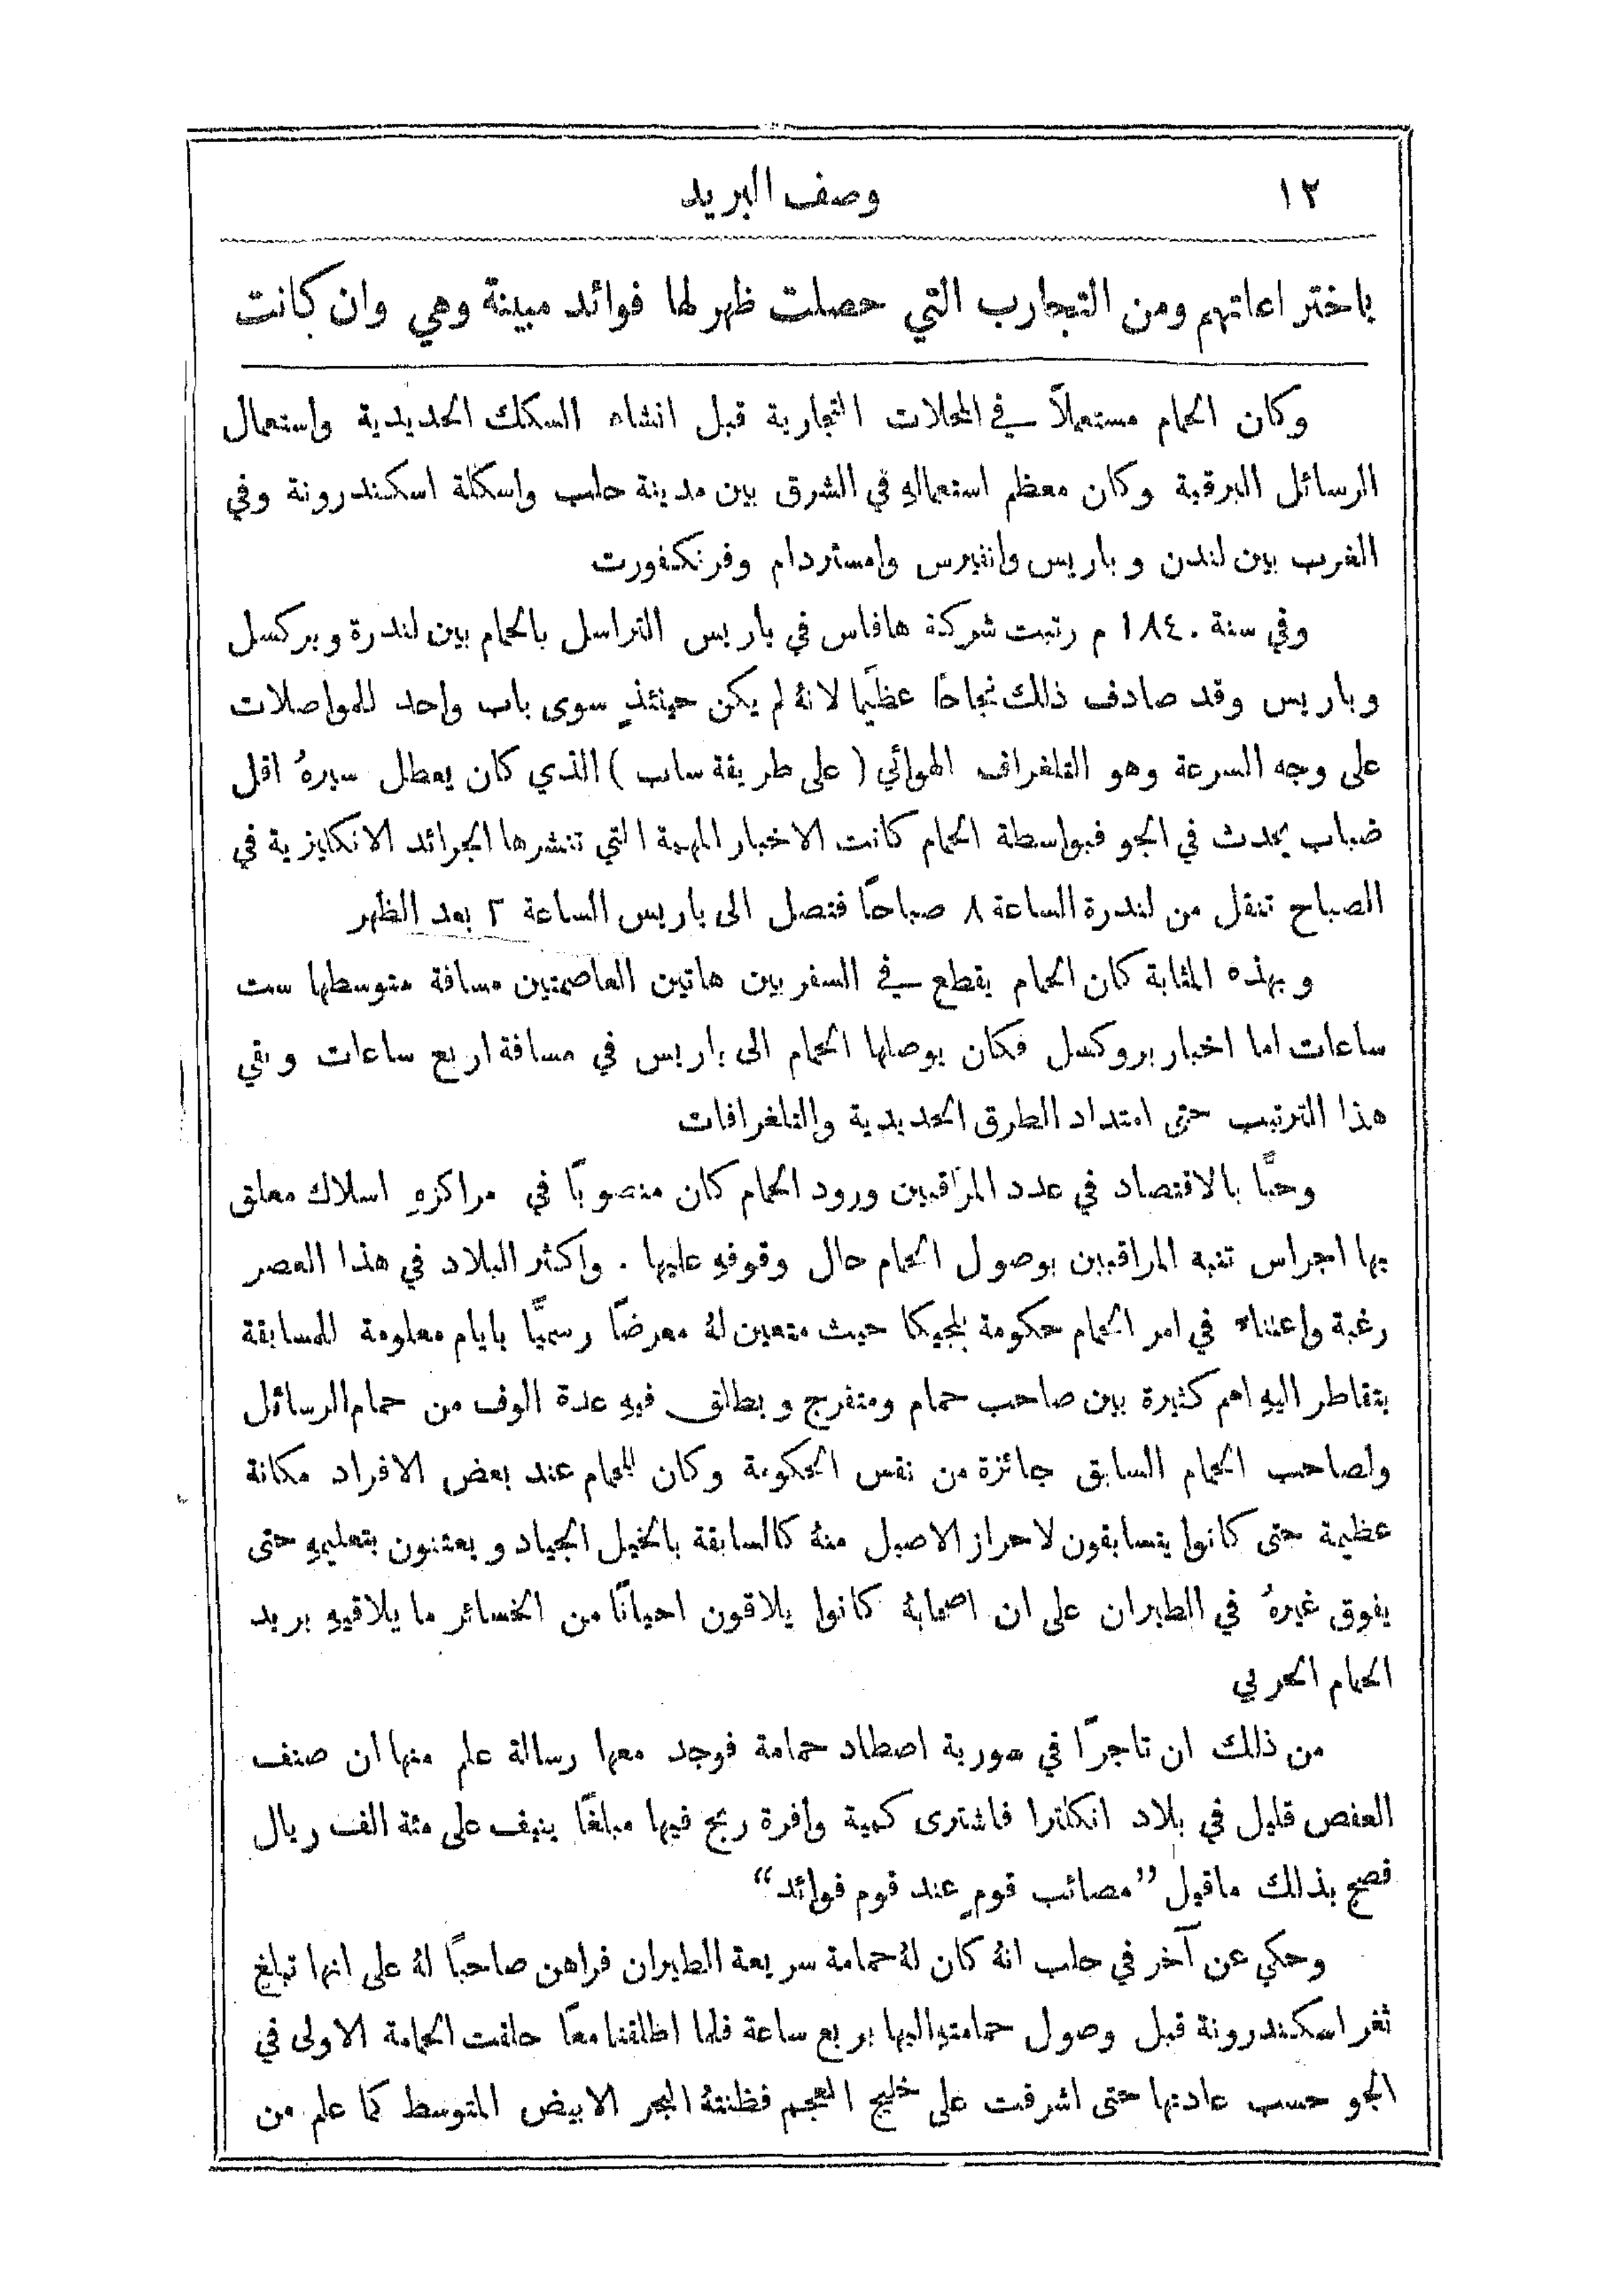 ١٢ وصف البريد
باختراعاتهم ومن التجارب التي حصلت ظهر لها فوائد مبينة وهي وان كانت
وكان الحمام مستعملاً في المحلات التجارية قبل انشاء السكك الحديدية واستعمال
الرسائل البرقية وكان معظم استعمالهِ في الشرق بين مدينة حلب واسكلة اسكندرونة وفي
الغرب بين لندن وباريس وانفيرس وامستردام وفرنكفورت
وفي سنة ١٨٤٠ م رتبت شركة هافاس في باريس التراسل بالحمام بين لندرة وبركسل
وباريس وقد صادف ذلك نجاحًا عظيمًا لانهُ لم يكن حينئذٍ سوى باب واحد للمواصلات
على وجه السرعة وهو التلغراف الهوائي ( على طريقة ساب ) الذي كان يعطل سيرهُ اقل
ضباب يحدث في الجو فبواسطة الحمام كانت الاخبار المهمة التي تنشرها الجرائد الانكليزية في
الصباح تنقل من لندرة الساعة ٨ صباحًا فتصل الى باريس الساعة ٢ بعد الظهر
وبهذه المثابة كان الحمام يقطع في السفر بين هاتين العاصمتين مسافة متوسطها ست
ساعات اما اخبار بروكسل فكان يوصلها الحمام الى باريس في مسافة اربع ساعات وبقي
هذا الترتيب حتى امتداد الطرق الحديدية والتلغرافات
وحبًّا بالاقتصاد في عدد المراقبين ورود الحمام كان منصوبًا في مراكزهِ اسلاك معلق
بها اجراس تنبه المراقبين بوصول الحمام حال وقوفهِ عليها . واكثر البلاد في هذا العصر
رغبة واعتناء في امر الحمام حكومة بلجيكا حيث متعين لهُ معرضًا رسميًّا بايام معلومة للمسابقة
يتقاطر اليهِ امم كثيرة بين صاحب حمام ومتفرج ويطلق فيهِ عدة الوف من حمام الرسائل
ولصاحب الحمام السابق جائزة من نفس الحكومة وكان للحمام عند بعض الافراد مكانة
عظيمة حتى كانوا يتسابقون لاحراز الاصيل منهُ كالسابقة بالخيل الجياد ويعتنون بتعليمهِ حتى
يفوق غيرهُ في الطيران على ان اصحابهُ كانوا يلاقون احيانًا من الخسائر ما يلاقيهِ بريد
الحمام الحربي
من ذلك ان تاجرًا في سورية اصطاد حمامة فوجد معها رسالة علم منها ان صنف
العفص قليل في بلاد انكلترا فاشترى كمية وافرة ربح فيها مبلغًا ينيف على مئة الف ريال
فصح بذلك ماقيل ”مصائب قومٍ عند قوم فوائد“
وحكي عن آخر في حلب انهُ كان لهُ حمامة سريعة الطيران فراهن صاحبًا لهُ على انها تبلغ
ثغر اسكندرونة قبل وصول حمامتهِ اليها بربع ساعة فلما اطلقتا معًا حلقت الحمامة الاولى في
الجو حسب عادتها حتى اشرفت على خليج العجم فظنتهُ البحر الابيض المتوسط كما علم من